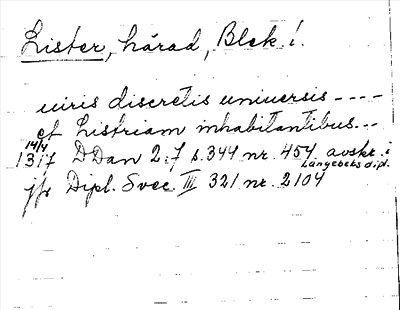 Lister, härad, Blek. l.
uiris discretis uniuersis ----
et Listriam inhabitantibus...
14/4
1317 DDan 2:7 s.344 nr. 454 avskr. i
Langebeks dipl.
jfr Dipl. Svec. III 321 nr. 2104